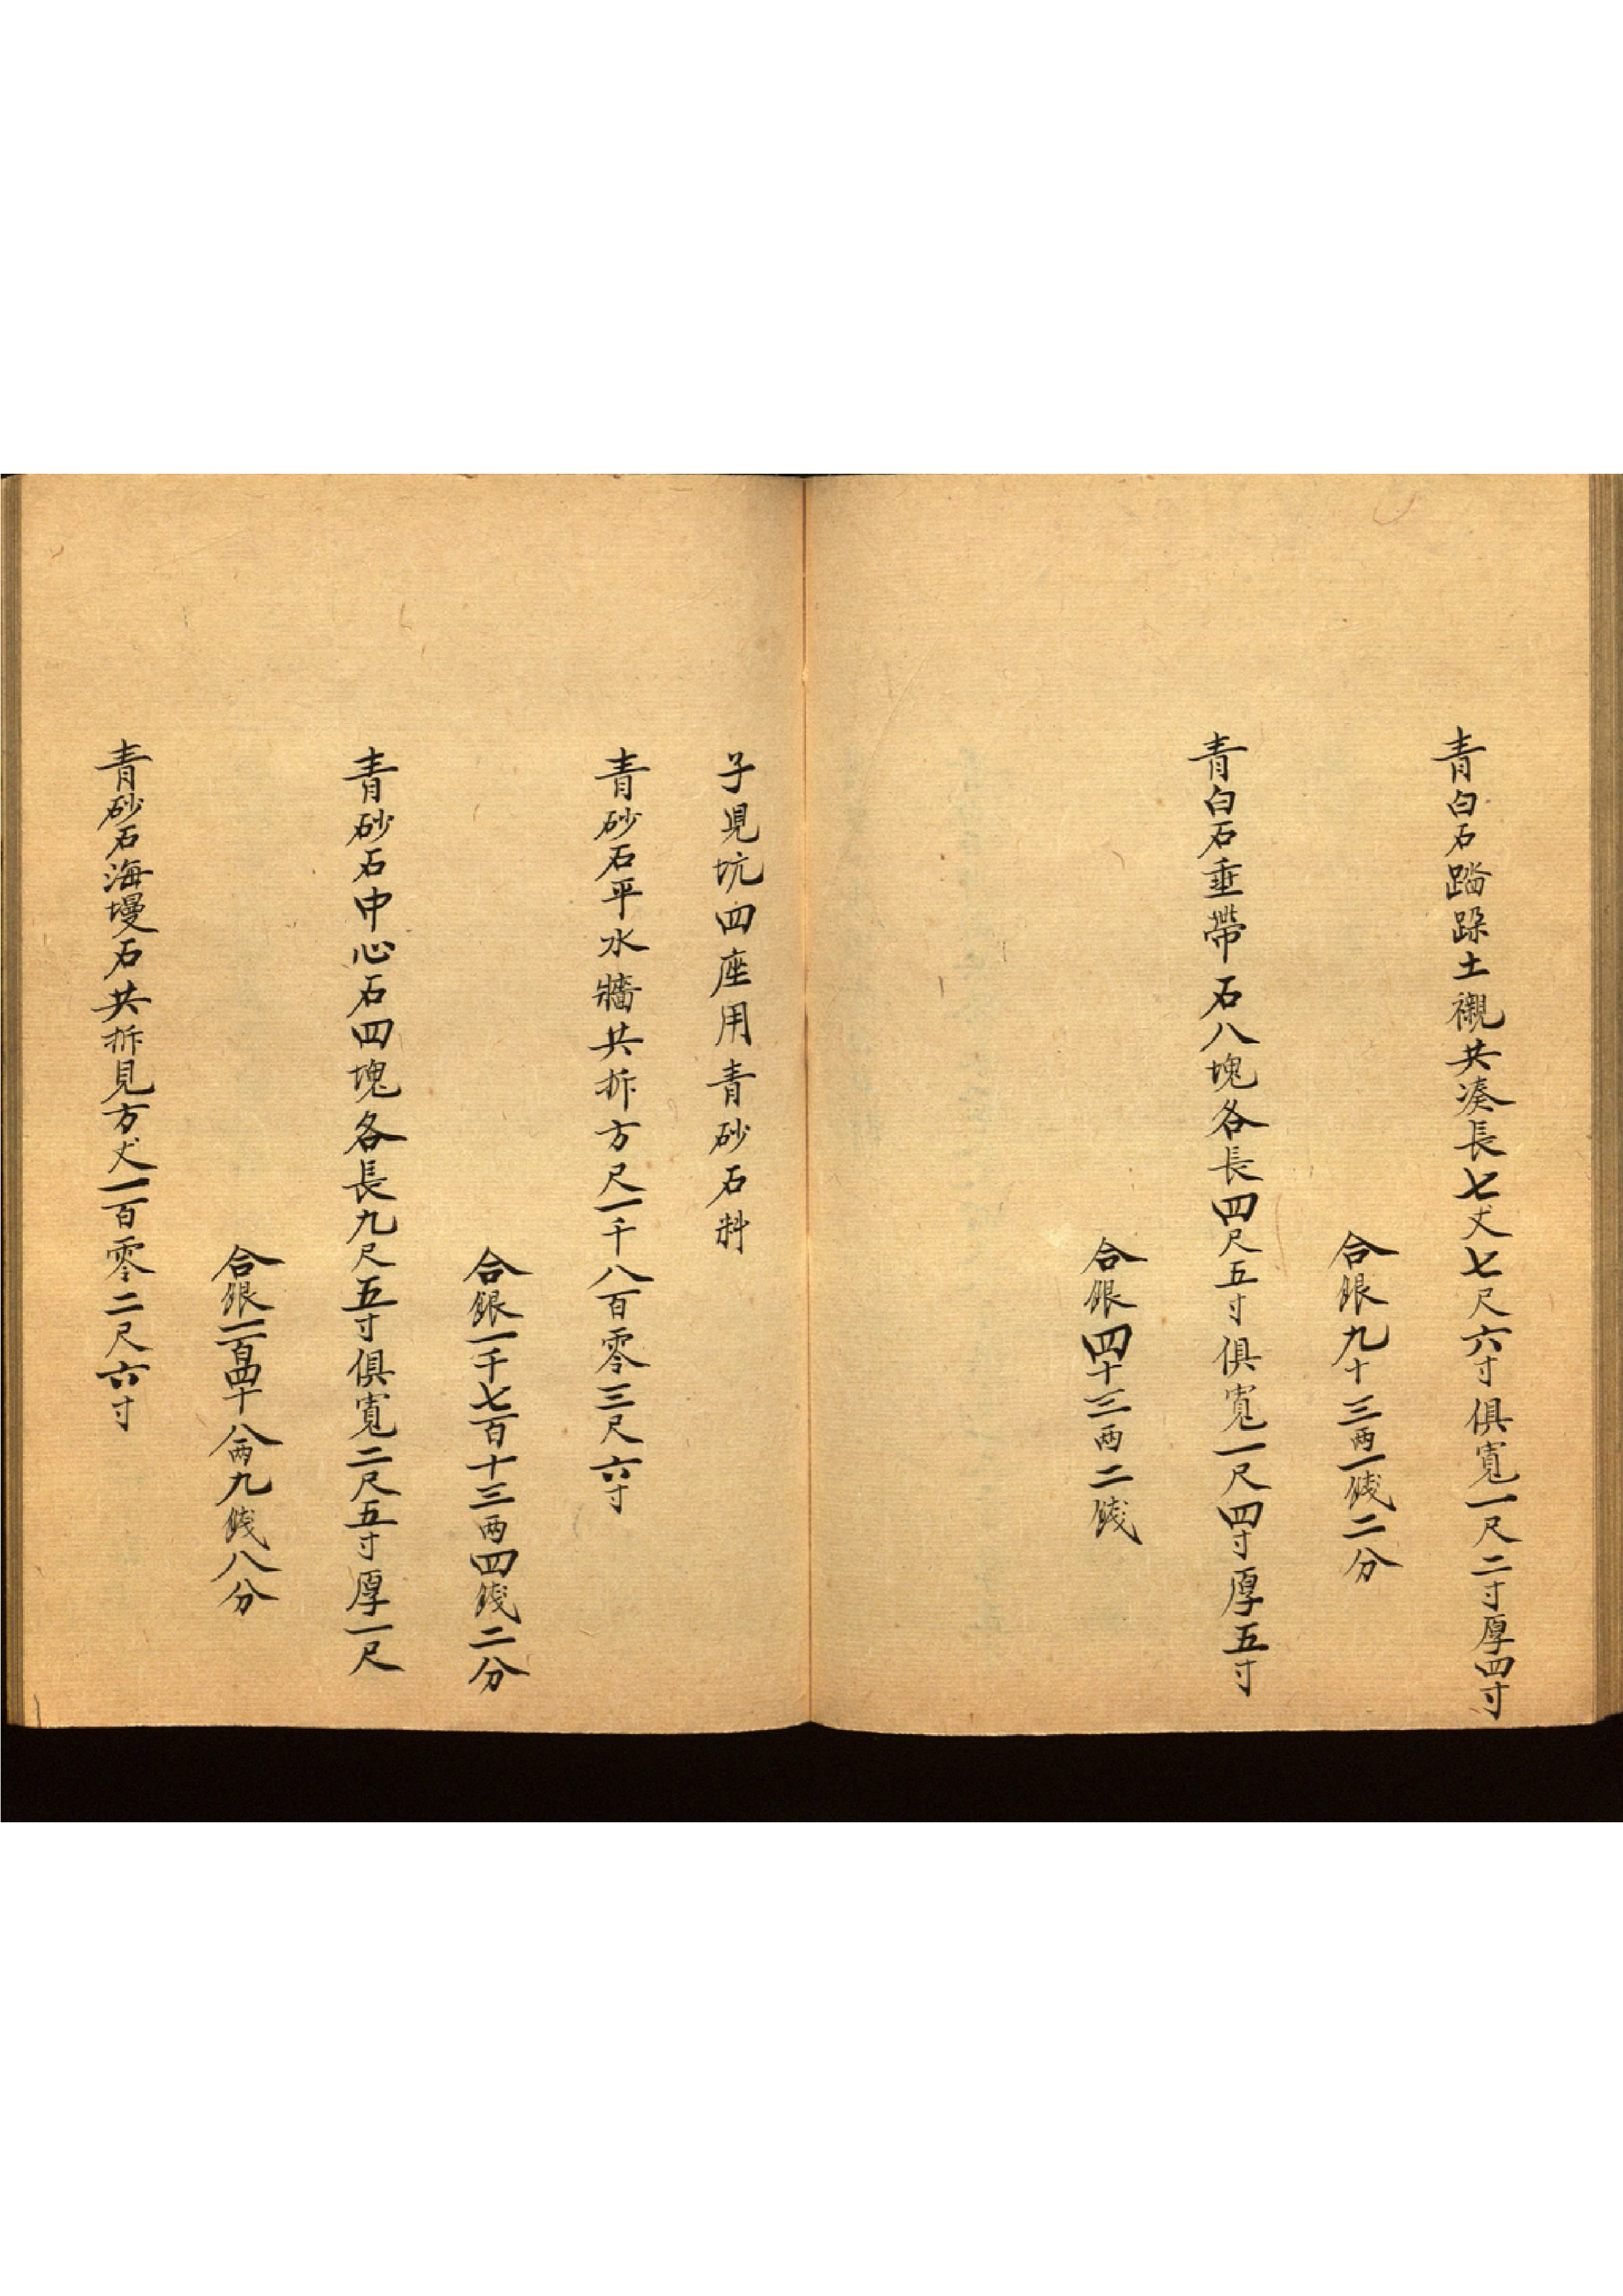 青白石踏跺土襯共湊長七丈七尺六寸俱寬一尺二寸厚四寸
合銀九十三两一錢二分
青白石垂帶石八塊各長四尺五寸俱寬一尺四寸厚五寸
合銀四十三两二錢
子見坑四座用青砂石料
青砂石平水牆共拆方尺一千八百零三尺六寸
合銀一千七百十三两四錢二分
青砂石中心石四塊各長九尺五寸俱寬二尺五寸厚一尺
合銀一百四十八两九錢八分
青砂石海墁石共拆見方丈一百零二尺六寸